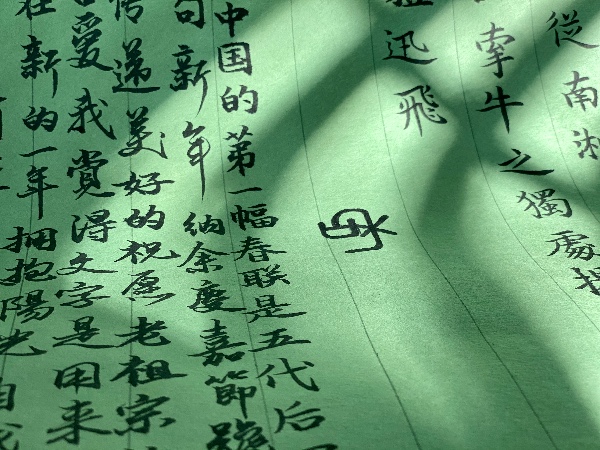 從南湘
牽牛之獨處揚
迅飛
中国的第一幅春联是五代后
句新年納余慶嘉節號
传递美好的祝愿老祖宗
愛我覺得文字是用来
在新的一年拥抱陽光自